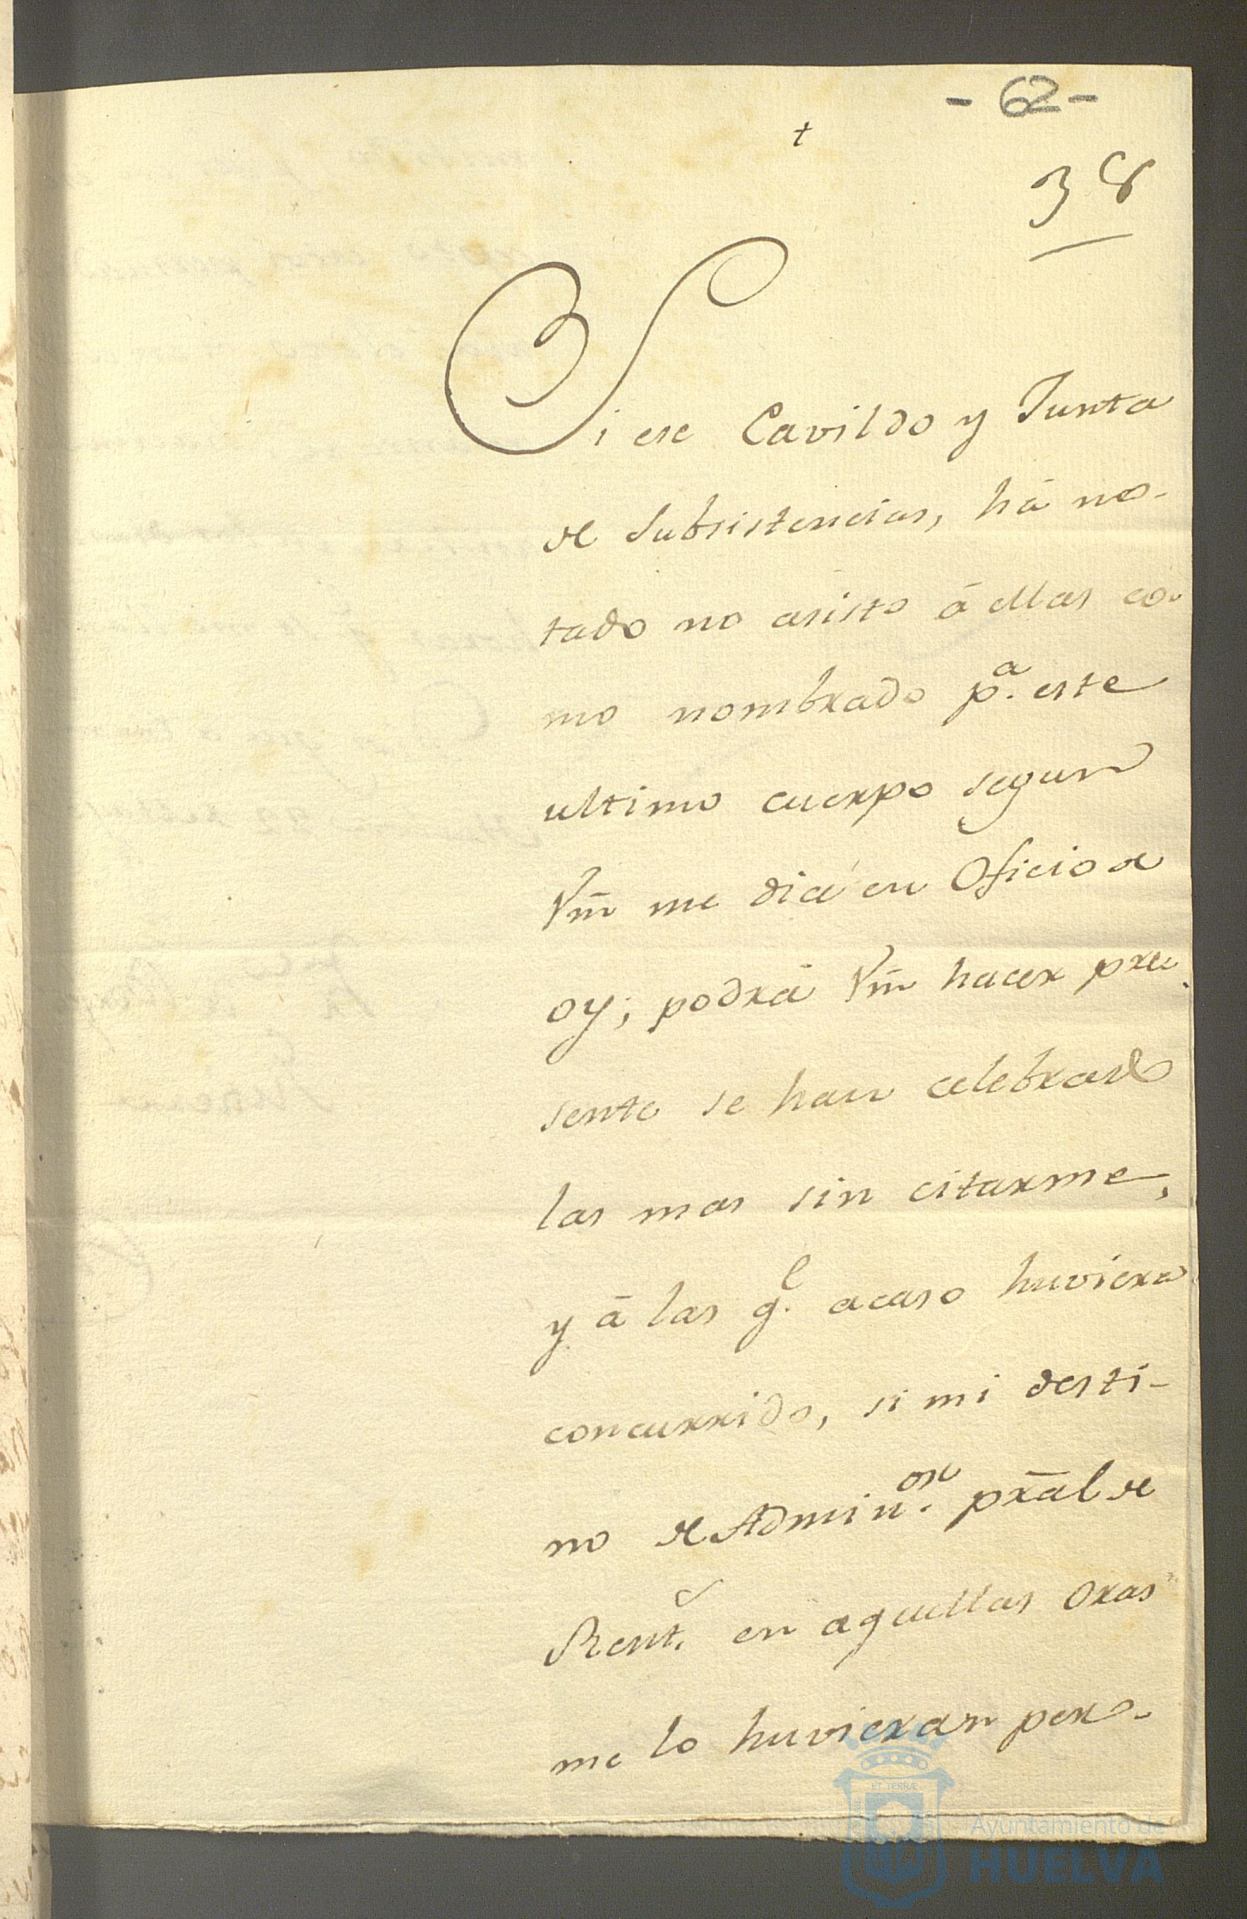 - 62 -
†
38
Si ese Cavildo y Junta
de Subsistencias, há no-
tado no asisto á ellas co-
mo nombrado pª. este
ultimo cuerpo segun
Vm̄ me dice en Oficio de
oy; podrá Vm̄ hacer pre-
sente se han celebrado
las mas sin citarme,
y á las qᵉ. acaso huviera
concurrido, si mi desti-
no de Adminᵒʳ. pr̄al de
Rentˢ. en aquellas oras
me lo huvieran per-
ET TERRÆ
Ayuntamiento de
HUELVA